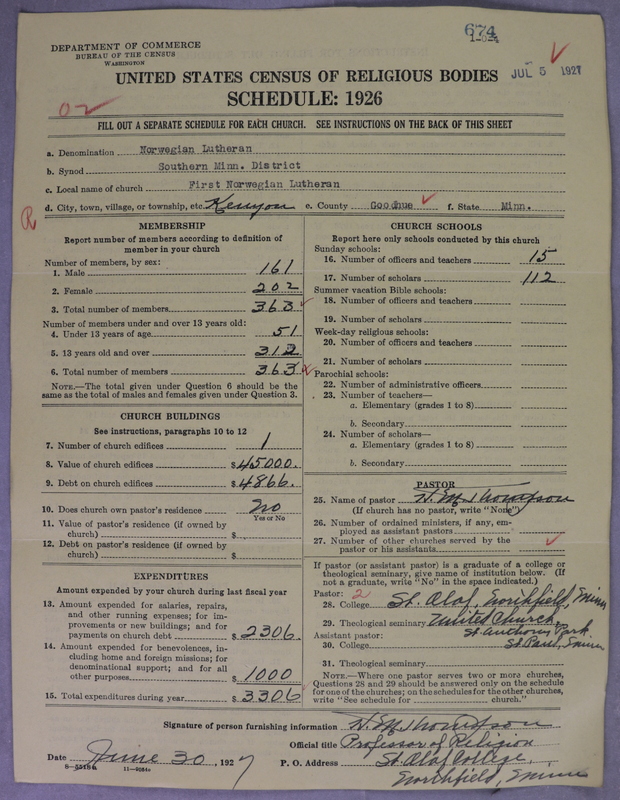 674
1-0-4
DEPARTMENT OF COMMERCE
BUREAU OF THE CENSUS
WASHINGTON
JUL 5 1927
UNITED STATES CENSUS OF RELIGIOUS BODIES
SCHEDULE: 1926
02
FILL OUT A SEPARATE SCHEDULE FOR EACH CHURCH. SEE INSTRUCTIONS ON THE BACK OF THIS SHEET
a. Denomination Norwegian Lutheran
b. Synod Southern Minn. District
c. Local name of church First Norwegian Lutheran
d. City, town, village, or township, etc. Kenyon e. County Goodhue f. State Minn.
R
MEMBERSHIP
Report number of members according to definition of member in your church
Number of members, by sex:
1. Male 161
2. Female 202
3. Total number of members 363
Number of members under and over 13 years old:
4. Under 13 years of age 51
5. 13 years old and over 312
6. Total number of members 363
NOTE.—The total given under Question 6 should be the
same as the total of males and females given under Question 3.
CHURCH BUILDINGS
See instructions, paragraphs 10 to 12
7. Number of church edifices 1
8. Value of church edifices $45000.
9. Debt on church edifices $4866.
10. Does church own pastor's residence? No
Yes or No
11. Value of pastor's residence (if owned by
church) $
12. Debt on pastor's residence (if owned by
church) $
EXPENDITURES
Amount expended by your church during last fiscal year
13. Amount expended for salaries, repairs,
and other running expenses; for im-
provements or new buildings; and for
payments on church debt $2306.
14. Amount expended for benevolences, in-
cluding home and foreign missions; for
denominational support; and for all
other purposes $1000
15. Total expenditures during year $3306
CHURCH SCHOOLS
Report here only schools conducted by this church
Sunday schools:
16. Number of officers and teachers 15
17. Number of scholars 112
Summer vacation Bible schools:
18. Number of officers and teachers
19. Number of scholars
Week-day religious schools:
20. Number of officers and teachers
21. Number of scholars
Parochial schools:
22. Number of administrative officers
23. Number of teachers—
a. Elementary (grades 1 to 8)
b. Secondary
24. Number of scholars—
a. Elementary (grades 1 to 8)
b. Secondary
PASTOR
25. Name of pastor N. M. Thompson
(If church has no pastor, write "None")
26. Number of ordained ministers, if any, em-
ployed as assistant pastors
27. Number of other churches served by the
pastor or his assistants
If pastor (or assistant pastor) is a graduate of a college or
theological seminary, give name of institution below. (If
not a graduate, write "No" in the space indicated.)
Pastor: 2
28. College St. Olaf, Northfield, Minn
29. Theological seminary United Church,
Assistant pastor: St. Anthony Park
30. College St Paul, Minn
31. Theological seminary
NOTE.—Where one pastor serves two or more churches,
Questions 28 and 29 should be answered only on the schedule
for one of the churches; on the schedules for the other churches,
write "See schedule for church."
Signature of person furnishing information N. M. Thompson
Official title Professor of Religion
Date June 30, 1927 P. O. Address St. Olaf College,
8—5518a 11—9084a Northfield, Minn